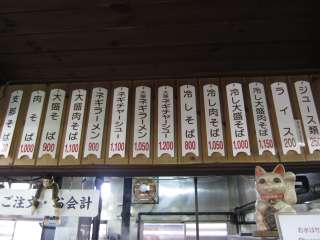 支那そば
肉そば 1,000
大盛そば 900
大盛肉そば 1,100
ネギラーメン 900
ネギチャーシュー 1,100
大盛ネギラーメン 1,050
大盛ネギチャーシュー 1,200
冷しそば 800
冷し肉そば 1,050
冷し大盛そば 1,000
冷し大盛肉そば 1,150
ライス 200
ジュース類 250
ご注文・お会計